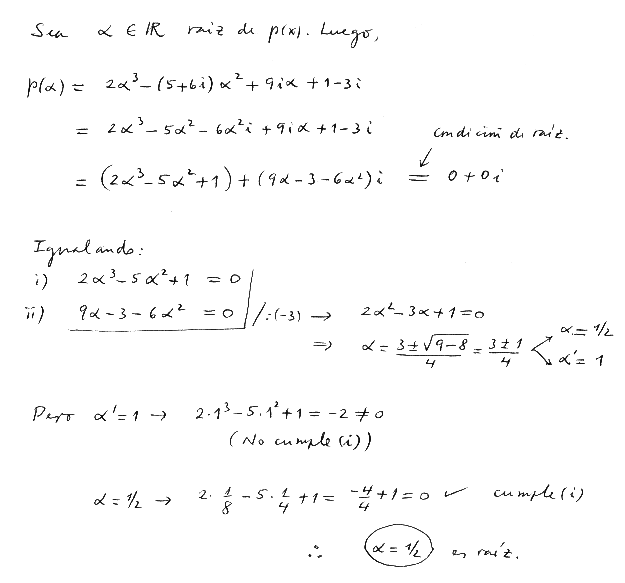 Sea α ∈ ℝ raiz de p(x). Luego,
p(α) = 2α³ - (5+6i)α² + 9iα + 1 - 3i
= 2α³ - 5α² - 6α²i + 9iα + 1 - 3i
condición de raíz.
= (2α³ - 5α² + 1) + (9α - 3 - 6α²)i = 0 + 0i
Igualando:
i) 2α³ - 5α² + 1 = 0
ii) 9α - 3 - 6α² = 0 /:(-3) → 2α² - 3α + 1 = 0
⇒ α = (3 ± √(9-8))/4 = (3 ± 1)/4
α = 1/2
α' = 1
Pero α' = 1 → 2·1³ - 5·1² + 1 = -2 ≠ 0
(No cumple (i))
α = 1/2 → 2·1/8 - 5·1/4 + 1 = -4/4 + 1 = 0 ✓ cumple (i)
∴ α = 1/2 es raíz.